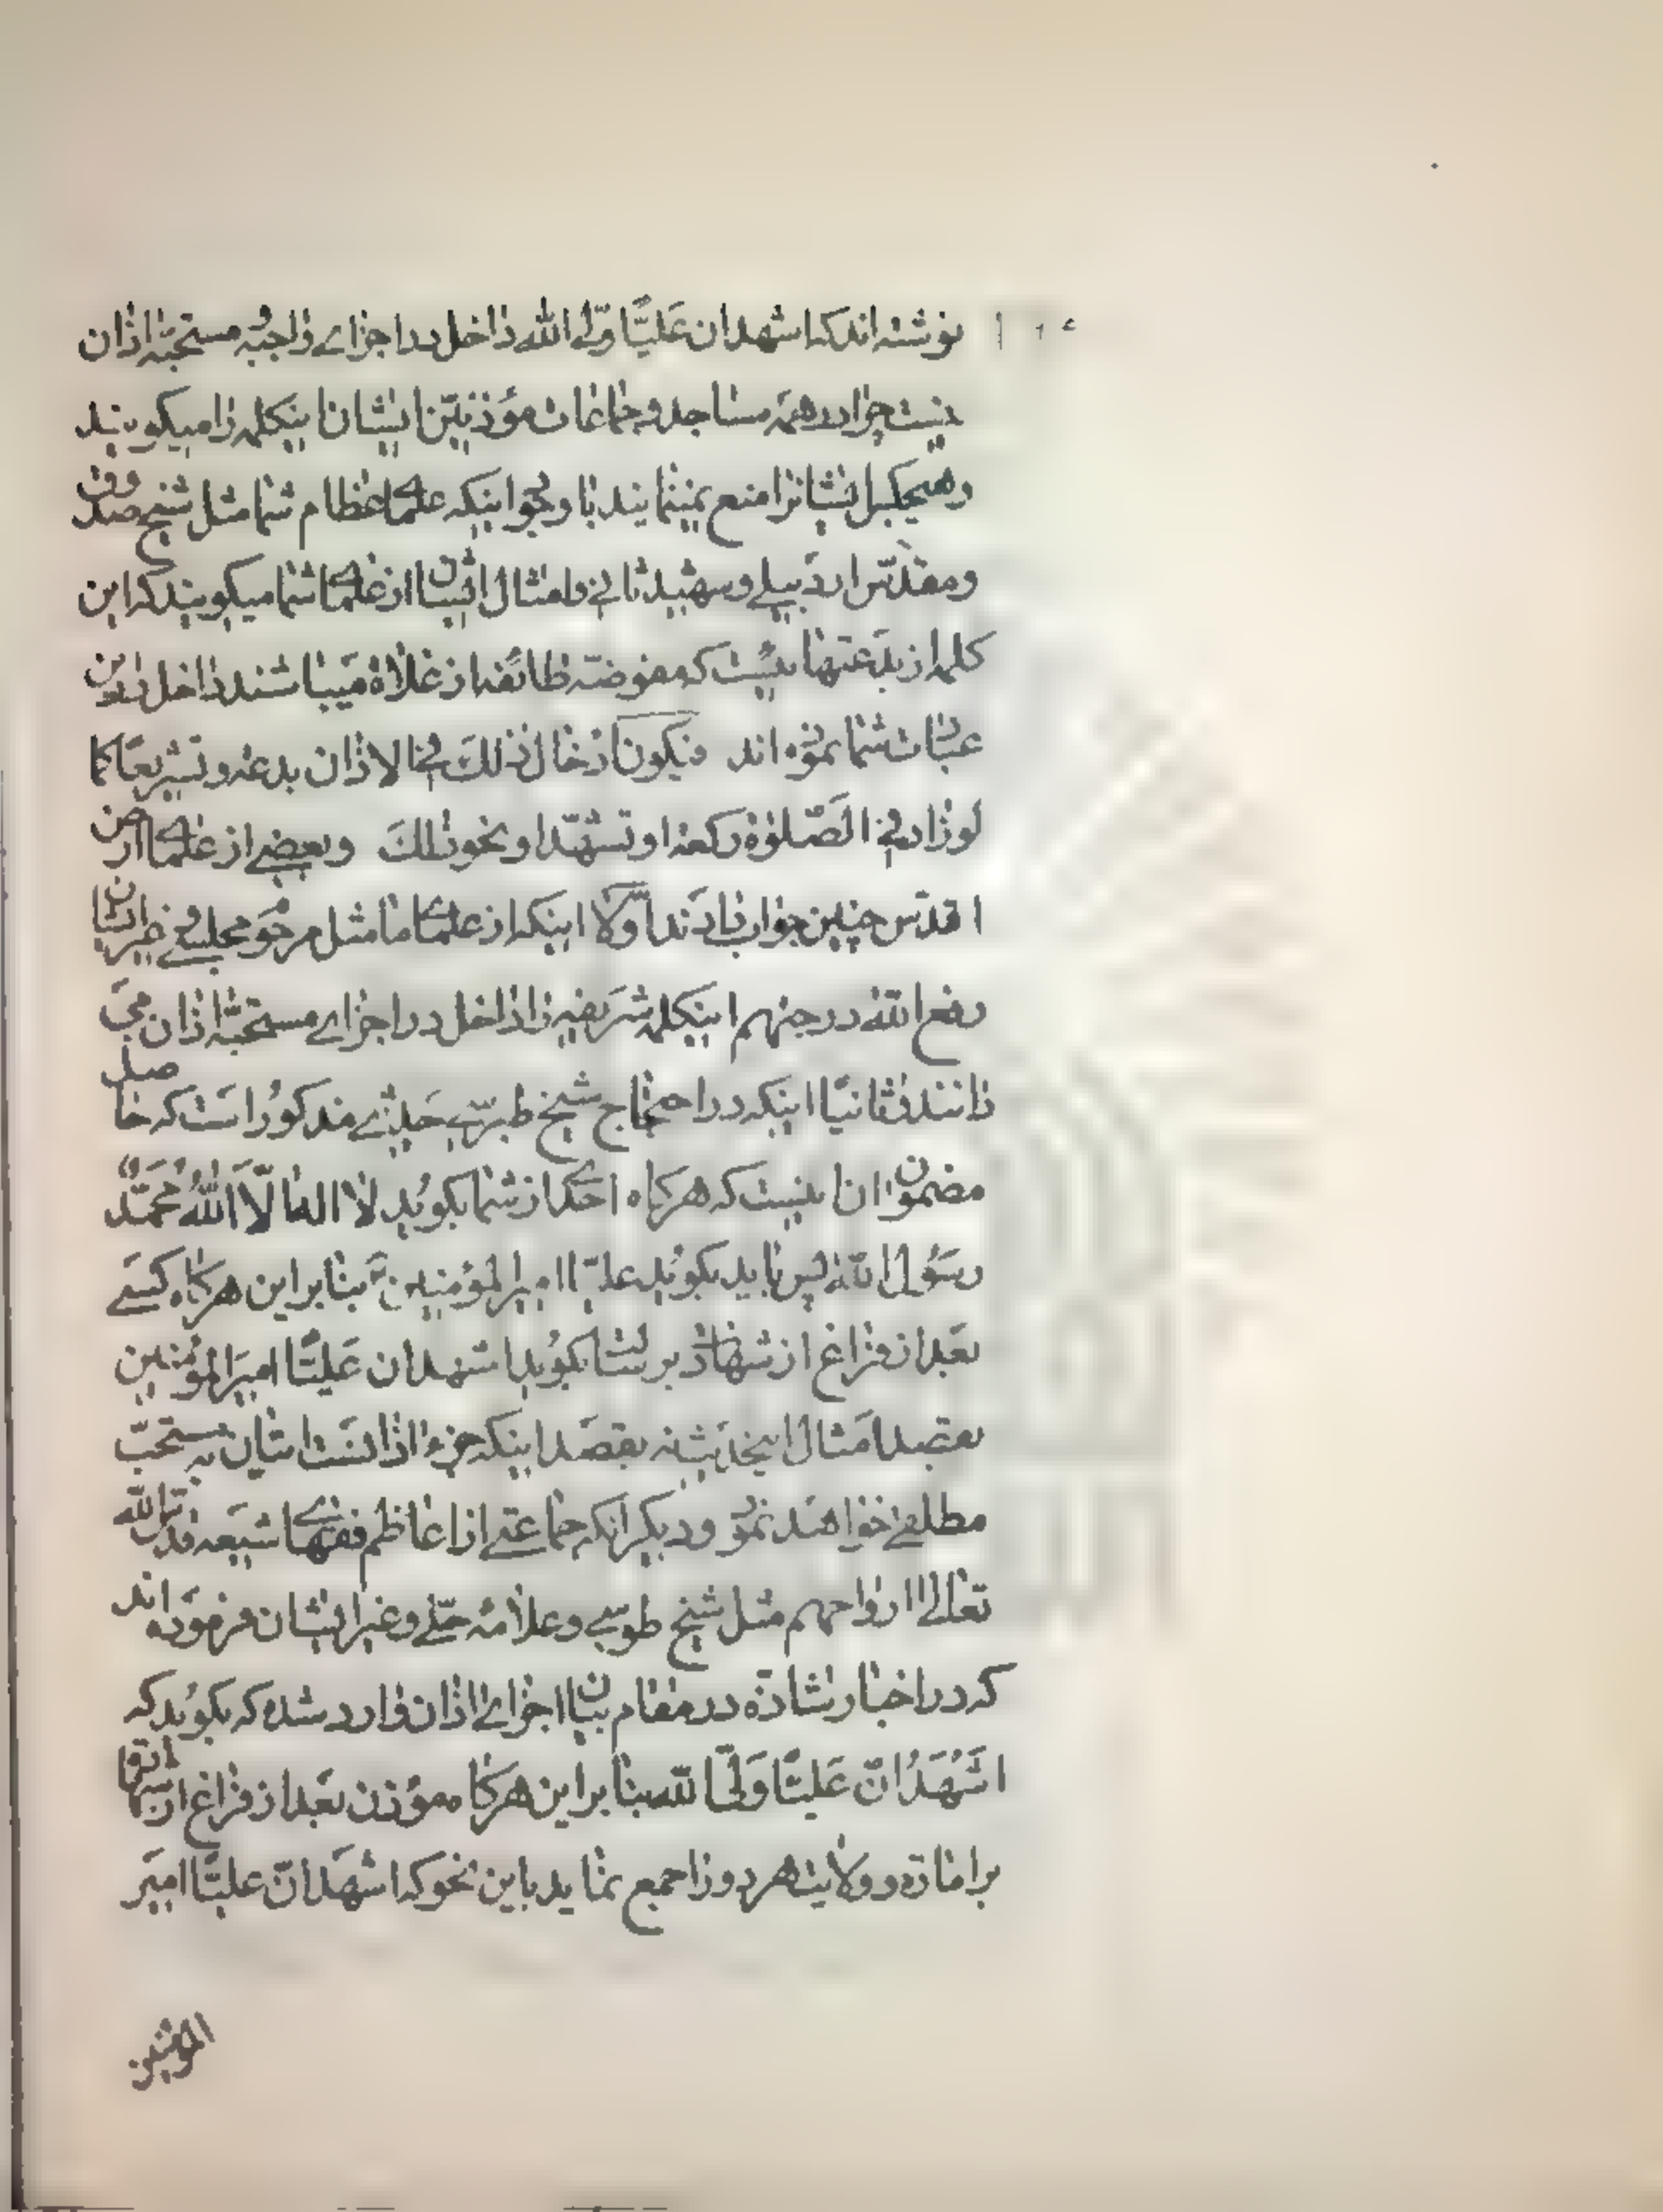 نوشته اند که اشهد ان عَلیًّا ولی الله داخل در اجزای واجبهٔ و مستحبّهٔ اذان
نیست چرا در همهٔ مساجد و جماعات مؤذنین ایشان اینکلمه را میگویند
و هیچکس ایشانرا منع نمینمایند با وجو اینکه علمای عظام شما مثل شیخ صدوق
و مقدّس اردبیلی و شهید ثانی و امثال ایشان از علمای شما میگویند که این
کلمه از بدعتهائیست که مفوضه طائفه از غلاة میباشند داخل در این
عبادات شما نموده اند فیکون ادخال ذلک فی الاذان بدعه و تشریعا کما
لو زاد فی الصّلوة رکعه او تشهّدا و نحو ذلک و بعضی از علمای ارض
اقدس چنین جواب دادند اوّلا اینکه از علمای ما مثل مرحو مجلسی و غیر ایشان
رفع الله درجتهم اینکلمه شریفه را داخل در اجزای مستحبّه اذان می
دانند و ثانیًا اینکه در احتجاج شیخ طبرسی حدیثی مذکور است که حاصل
مضمون ان اینست که هرگاه احدی از شما بگوید لا اله الّا الله محمّدٌ
رسُول الله پس باید بگوید علیّا امیر المؤمنین ع بنا بر این هرگاه کسی
بعد از فراغ از شهادة برسالت بگوید اشهد ان عَلیًّا امیرَ المؤمنین
بقصد امتثال اینحدیث نه بقصد اینکه جزء اذانست امتثال به مستحبّ
مطلقی خواهند نمود و دیگر انکه جماعتی از اعاظم فقهای شیعه قدّس الله
تعالی ارواحهم مثل شیخ طوسی و علامهٔ حلّی و غیر ایشان فرموده اند
که در اخبار شاذه در مقام بیان اجزای اذان وارد شده که بگوید که
اَشهَدُ انّ عَلیًّا وَلیّ الله بنا بر این هرگاه مؤذن بعد از فراغ از شهادة
بر اماره و ولایت هر دو را جمع نماید باین نحو که اشهد انّ علیًّا امیر
المؤمنین